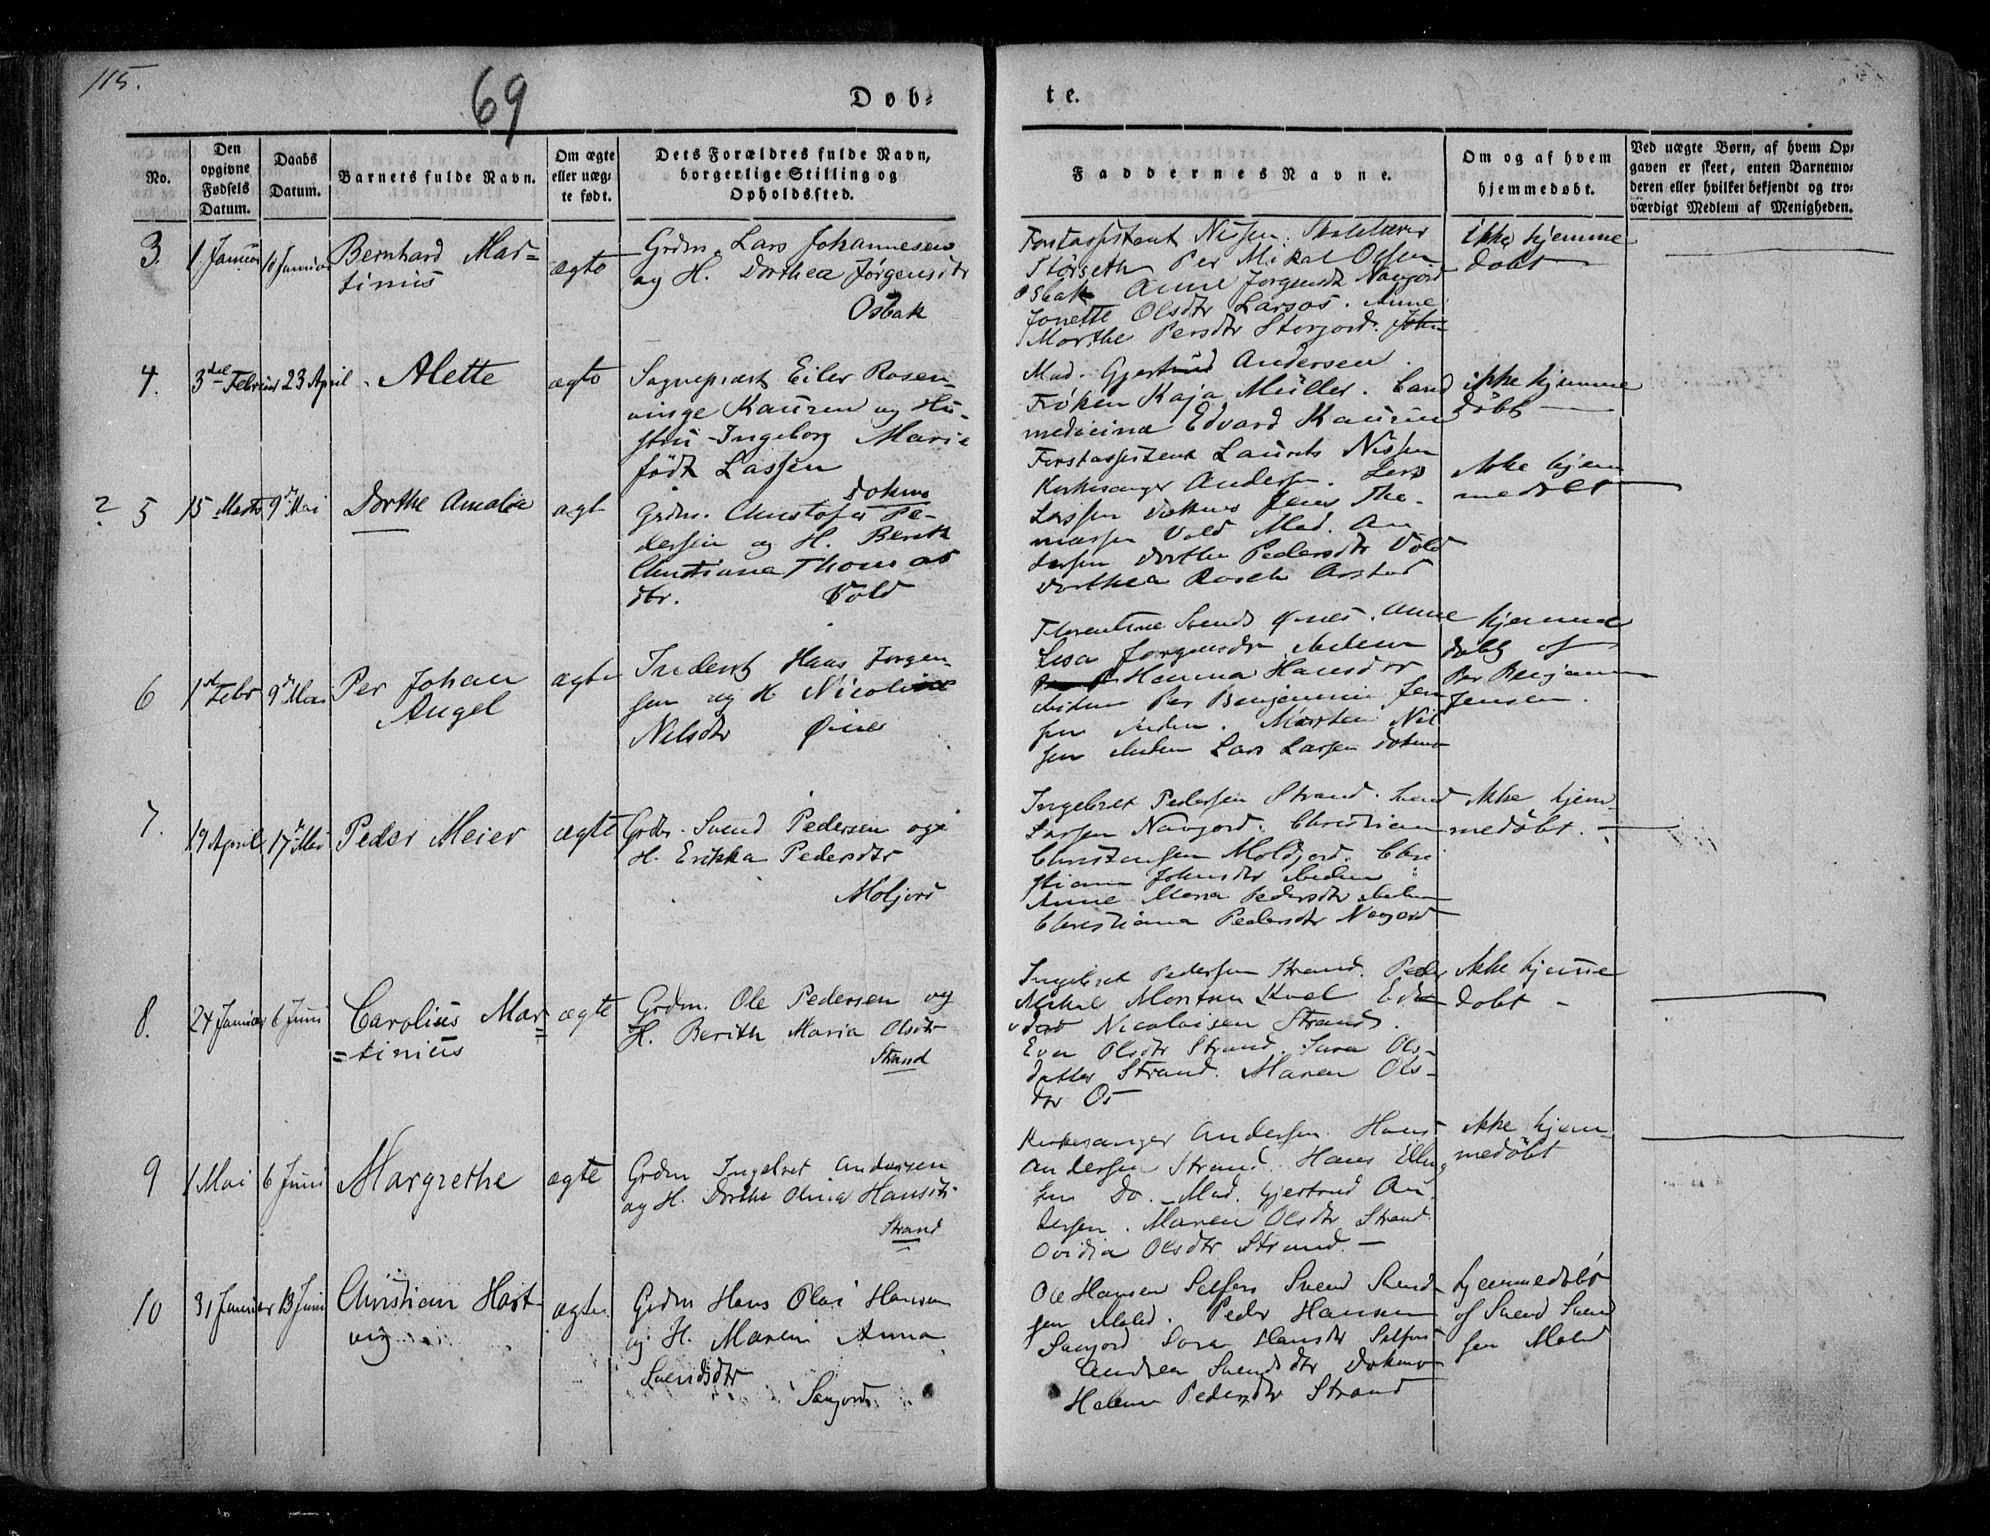 115.
69
Døb-
te.
No.
Den
opgivne
Fødsels
Datum.
Daabs
Datum.
Barnets fulde Navn.
Om ægte
eller uæg-
te født.
Dets Forældres fulde Navn,
borgerlige Stilling og
Opholdssted.
Faddernes Navne.
Om og af hvem
hjemmedøbt.
Ved uægte Børn, af hvem Op-
gaven er skeet, enten Barnemo-
deren eller hvilket bekjendt og tro-
værdigt Medlem af Menigheden.
3.
1 Januar
Januar
Bernhard Mar-
tinius
ægte
Grdm. Lars Johannesen
og H. Dorthea Jørgensdtr
Osbak
Forstassistent Nissen. Skolelærer
Størseth Per Mikal Olsen
Osbak Anne Jørgensdtr Navjord
Jonette Olsdtr Larsos. Anne
Marthe Persdtr Storjord.
ikke hjemme
døbt
4.
3 Februar
23 April
Alette
ægte
Sognepræst Eiler Rosen-
vinge Kauren og Hu-
stru Ingeborg Marie
født Lassen
Mad. Gjertrud Andersen.
Frøken Kaja Müller. Cand
medicina Edvard Kauren
Forstassistent Laurits Nissen
ikke hjemme
døbt
? 5
15 Marts
9 Mai
Dorthe Amalia
ægt
Dokmo
Grdm. Christofer Pe-
dersen og H. Berith
Christiana Thomas
dtr. Vold
Kirkesanger Andersen. Lars
Larssen Dokmo Jens Tho-
massen Vold Mad. An
dersen Dorthe Pedersdtr Vold
Dorthea Rosch Arstad
ikke hjem
medøbt
6
1 Febr
9 Mai
Per Johan
Angel
ægte
Inderst Hans Jørgen-
sen og H Nicoline
Nilsdtr Øines
Florentine Svends Øines. Anne
Lisa Jørgensdtr
Hanna Hansdtr
Per Benjamin Jen
sen Morten Nil
sen Lars Larsen Dokmo
hjemme
døbt af
Per Benjamin
Jensen.
7.
19 April
17 Mai
Peder Meier
ægte
Grdbr. Svend Pedersen og
H. Erikka Pedersdtr
Moljord
Ingebret Pedersen Strand. Svend
Larsen Navjord. Christian
Christensen Moldjord. Chri
stiana Johnsdtr
Anne Maria Pedersdtr
Christiana Pedersdtr Navjord
ikke hjem
medøbt.
8.
24 Januar
6 Juni
Carolius Mar=
=tinius
ægte
Grdm. Ole Pedersen og
H. Berith Maria Olsdtr
Strand
Ingebret Pedersen Strand. Peder
Mikal Morten Ed-
vard Nicolaisen Strand.
Ever Olsdtr Strand. Sara Ols-
datter Strand. Maren Ols-
dtr Os
ikke hjemme
døbt -
9
1 Mai
6 Juni
Margrethe
ægte
Grdm Ingebret Andersen
og H. Dorthe Olina Hansdtr
Strand
Kirkesanger Andersen. Hans
Andersen Strand. Hans Elling
sen Do. Mad. Gjertrud An
dersen. Maren Olsdtr Strand
Ovidia Olsdtr Strand. -
ikke hjem
medøbt
10
31 Januar
13 Juni
Christian Hart-
vig
ægte
Grdm Hans Olai Hansen
og H. Maren Anna
Svendsdtr
Sanjord
Ole Hansen Selfors Svend Svend-
sen Peder Hansen
Sanjord Sara Hansdtr Selfors
Andrea Svendsdtr Dokmo
Helene Pedersdtr Strand
hjemmedøbt
af Svend Svend
sen